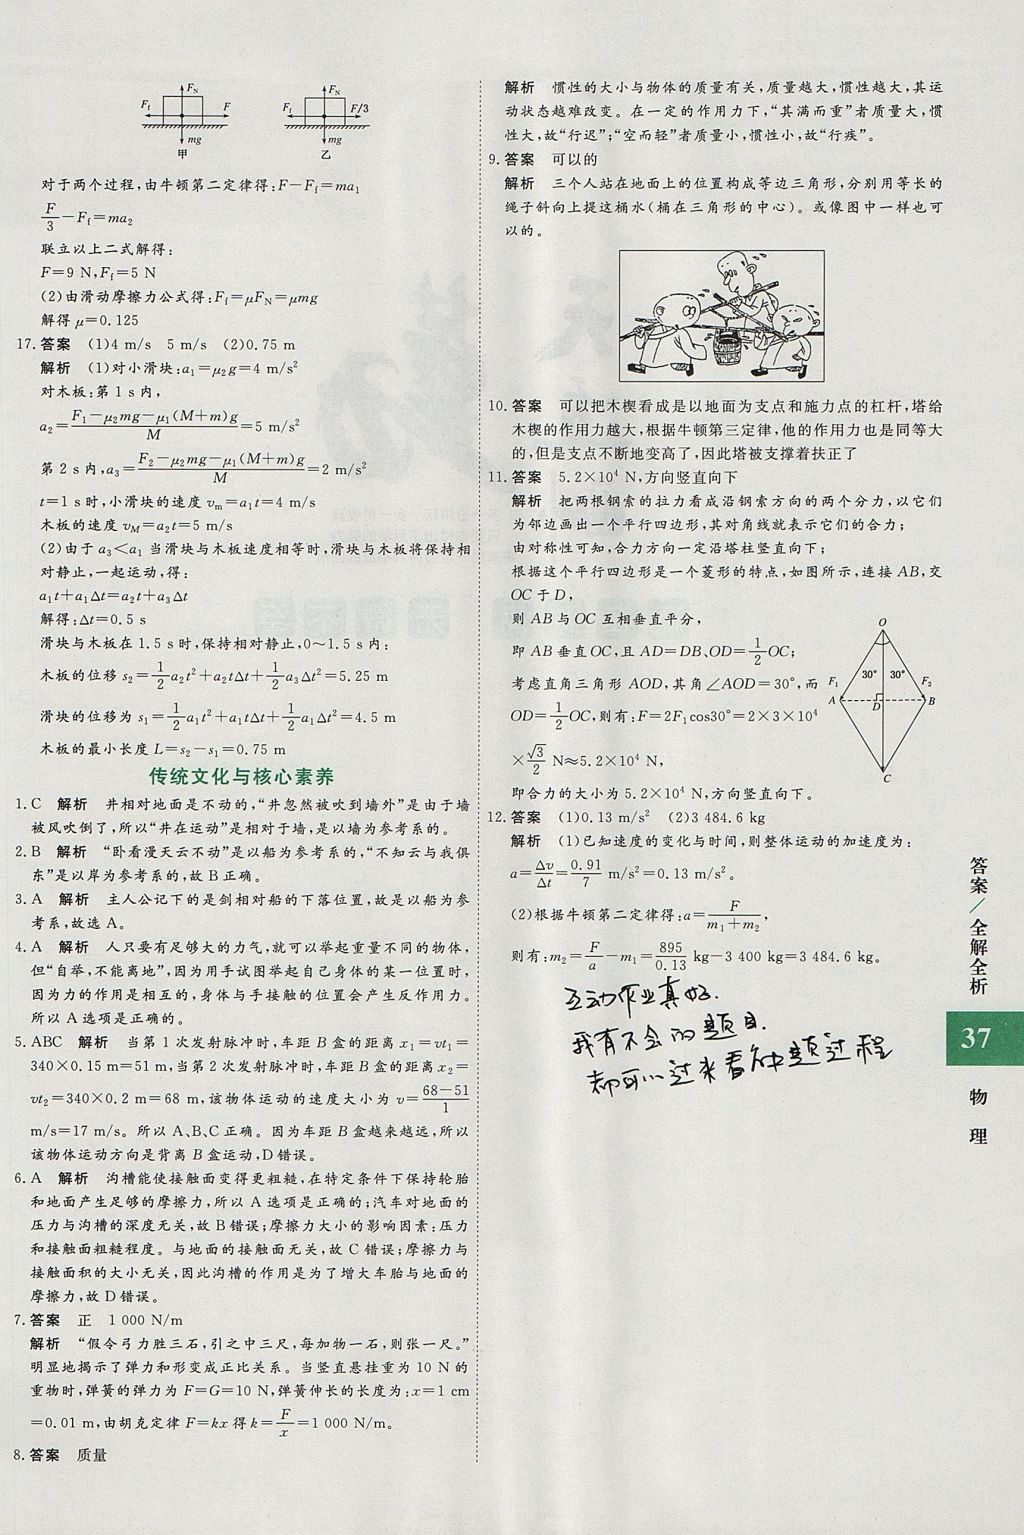 F_N
F_f
F
mg
甲
F_N
F_f
F/3
mg
乙
对于两个过程,由牛顿第二定律得:F−F_f=ma₁
F/3−F_f=ma₂
联立以上二式解得:
F=9 N,F_f=5 N
(2)由滑动摩擦力公式得:F_f=μF_N=μmg
解得 μ=0.125
17.答案 (1)4 m/s 5 m/s (2)0.75 m
解析 (1)对小滑块:a₁=μ₂g=4 m/s²
对木板:第 1 s 内,
a₂=(F₁−μ₂mg−μ₁(M+m)g)/M=5 m/s²
第 2 s 内,a₃=(F₂−μ₂mg−μ₁(M+m)g)/M=2 m/s²
t=1 s 时,小滑块的速度 v_m=a₁t=4 m/s
木板的速度 v_M=a₂t=5 m/s
(2)由于 a₃<a₁ 当滑块与木板速度相等时,滑块与木板将保持相
对静止,一起运动,得:
a₁t+a₁Δt=a₂t+a₃Δt
解得:Δt=0.5 s
滑块与木板在 1.5 s 时,保持相对静止,0∼1.5 s 内:
木板的位移 s₂=1/2a₂t²+a₂tΔt+1/2a₃Δt²=5.25 m
滑块的位移为 s₁=1/2a₁t²+a₁tΔt+1/2a₁Δt²=4.5 m
木板的最小长度 L=s₂−s₁=0.75 m
传统文化与核心素养
1.C 解析 井相对地面是不动的,“井忽然被吹到墙外”是由于墙
被风吹倒了,所以“井在运动”是相对于墙,是以墙为参考系的。
2.B 解析 “卧看漫天云不动”是以船为参考系的,“不知云与我俱
东”是以岸为参考系的,故 B 正确。
3.A 解析 主人公记下的是剑相对船的下落位置,故是以船为参
考系,故选 A。
4.A 解析 人只要有足够大的力气,就可以举起重量不同的物体,
但“自举,不能离地”,因为用手试图举起自己身体的某一位置时,
因为力的作用是相互的,身体与手接触的位置会产生反作用力。
所以 A 选项是正确的。
5.ABC 解析 当第 1 次发射脉冲时,车距 B 盒的距离 x₁=vt₁=
340×0.15 m=51 m,当第 2 次发射脉冲时,车距 B 盒的距离 x₂=
vt₂=340×0.2 m=68 m,该物体运动的速度大小为 v=(68−51)/1
m/s=17 m/s。所以 A、B、C 正确。因为车距 B 盒越来越远,所以
该物体运动方向是背离 B 盒运动,D 错误。
6.A 解析 沟槽能使接触面变得更粗糙,在特定条件下保持轮胎
和地面产生足够的摩擦力,所以 A 选项是正确的;汽车对地面的
压力与沟槽的深度无关,故 B 错误;摩擦力大小的影响因素:压力
和接触面粗糙程度。与地面的接触面无关,故 C 错误;摩擦力与
接触面积的大小无关,因此沟槽的作用是为了增大车胎与地面的
摩擦力,故 D 错误。
7.答案 正 1 000 N/m
解析 “假令弓力胜三石,引之中三尺,每加物一石,则张一尺。”
明显地揭示了弹力和形变成正比关系。当竖直悬挂重为 10 N 的
重物时,弹簧的弹力为 F=G=10 N,弹簧伸长的长度为:x=1 cm
=0.01 m,由胡克定律 F=kx 得 k=F/x=1 000 N/m。
8.答案 质量
解析 惯性的大小与物体的质量有关,质量越大,惯性越大,其运
动状态越难改变。在一定的作用力下,“其满而重”者质量大,惯
性大,故“行迟”;“空而轻”者质量小,惯性小,故“行疾”。
9.答案 可以的
解析 三个人站在地面上的位置构成等边三角形,分别用等长的
绳子斜向上提这桶水(桶在三角形的中心)。或像图中一样也可
以的。
10.答案 可以把木楔看成是以地面为支点和施力点的杠杆,塔给
木楔的作用力越大,根据牛顿第三定律,他的作用力也是同等大
的,但是支点不断地变高了,因此塔被支撑着扶正了
11.答案 5.2×10⁴ N,方向竖直向下
解析 把两根钢索的拉力看成沿钢索方向的两个分力,以它们
为邻边画出一个平行四边形,其对角线就表示它们的合力;
由对称性可知,合力方向一定沿塔柱竖直向下;
根据这个平行四边形是一个菱形的特点,如图所示,连接 AB,交
OC 于 D,
则 AB 与 OC 互相垂直平分,
即 AB 垂直 OC,且 AD=DB、OD=1/2OC;
考虑直角三角形 AOD,其角∠AOD=30°,而
OD=1/2OC,则有:F=2F₁cos30°=2×3×10⁴
×√3/2 N≈5.2×10⁴ N,
即合力的大小为 5.2×10⁴ N,方向竖直向下。
O
30° 30°
F₁ F₂
A D B
C
12.答案 (1)0.13 m/s² (2)3 484.6 kg
解析 (1)已知速度的变化与时间,则整体运动的加速度为:
a=Δv/Δt=0.91/7 m/s²=0.13 m/s²。
(2)根据牛顿第二定律得:a=F/(m₁+m₂),
则有:m₂=F/a−m₁=895/0.13 kg−3 400 kg=3 484.6 kg。
互动作业真好.
我有不会的题目.
都可以过来看解题过程
答案/全解全析
37
物理